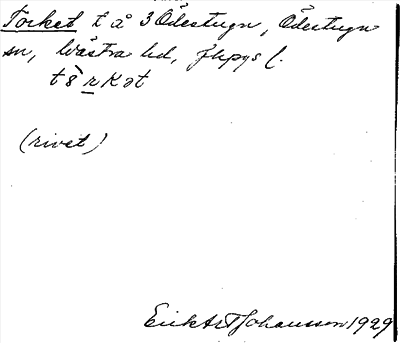 Torket t å 3 Ödestugu, Ödestugu
sn, Västra hd, Jkpgs l.
tò̀rkat
(rivet)
Erik Art Johansson 1929